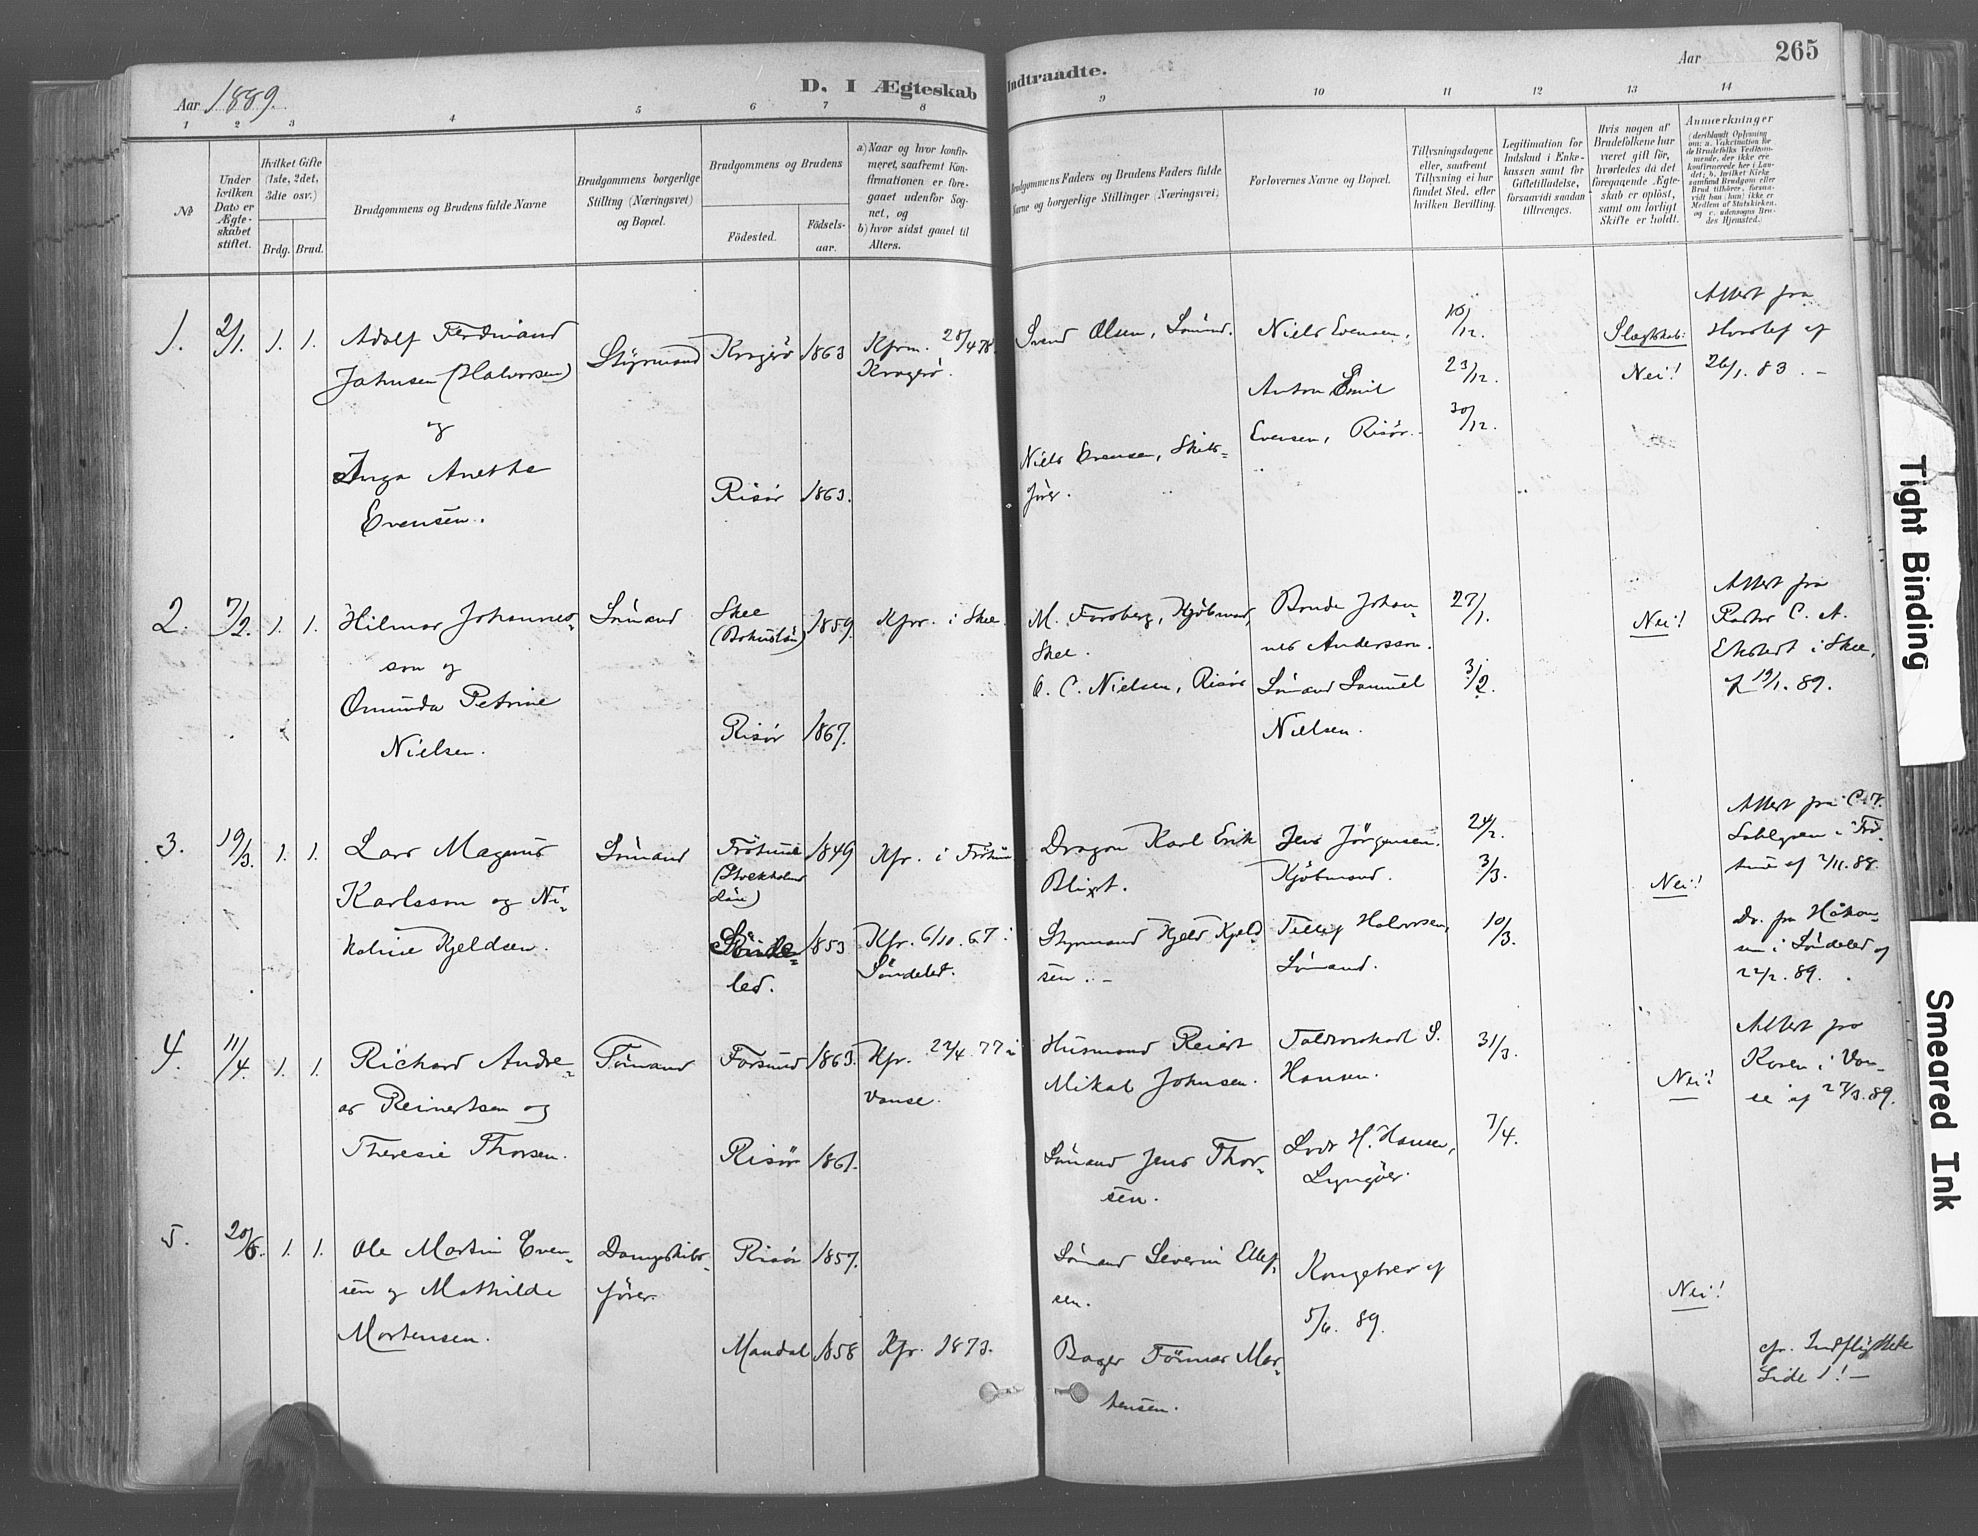 265
Aar 1889.
D. I Ægteskab Indtraadte.
Aar
1 2 3 4 5 6 7 8 9 10 11 12 13 14
No
Under hvilken Dato er Ægteskabet stiftet.
Hvilket Gifte (1ste, 2det, 3die osv.)
Brdg. Brud.
Brudgommens og Brudens fulde Navne
Brudgommens borgerlige Stilling (Næringsvei) og Bopæl.
Brudgommens og Brudens
Fødested.
Fødselsaar.
a) Naar og hvor konfirmeret, saafremt Konfirmationen er foregaaet udenfor Sognet, og
b) hvor sidst gaaet til Alters.
Brudgommens Faders og Brudens Faders fulde Navne og borgerlige Stillinger (Næringsvei)
Forlovernes Navne og Bopæl.
Tillysningsdagene eller, saafremt Tillysning ei har fundet Sted, efter hvilken Bevilling.
Legitimation for Indskud i Enkekassen samt for Giftetilladelse, forsaavidt saadan tiltrænges.
Hvis nogen af Brudefolkene har været gift før, hvorledes da det foregaaende Ægteskab er opløst, samt om lovligt Skifte er holdt.
Anmærkninger
(deriblandt Oplysning om: a. Vakcination for de Brudefolks Vedkommende, der ikke ere konfirmerede her i Landet; b. hvilket Kirkesamfund Brudgom eller Brud tilhører, forsaavidt han (hun) ikke er Medlem af Statskirken, og c. udensogns Brudes Hjemsted.)
1. 2/1. 1. 1.
Adolf Ferdinand
Johnsen (Halvorsen)
og
Inga Anethe
Evensen.
Styrmand
Kragerø 1863
Risør 1863.
Kfrm. 28/4 78.
Kragerø.
Svend Olsen, Sømd.
Niels Evensen, Skibs-
fører.
Niels Evensen,
Anton Emil
Evensen, Risør.
16/12.
23/12.
30/12.
Slægtskab:
Nei!
Attest fra
26/1. 83. -
2. 7/2. 1. 1.
Hilmar Johannes-
son og
Omunda Petrine
Nielsen.
Sømand
Skee
(Bohuslän) 1859.
Risør 1867.
Kfr. i Skee.
M. Forsberg, Kjøbmand,
Skee.
O. C. Nielsen, Risør
Bonde Johan-
nes Andersson.
Sømand Samuel
Nielsen.
27/1.
3/2.
Nei!
Attest fra
Pastor C. A.
Ekstedt i Skee,
af 19/1. 89.
3. 19/3. 1. 1.
Lars Magnus
Karlsson og Ni-
koline Kjeldsen.
Sømand
Frötuna 1849
(Stockholms
Län)
Sönde-
led. 1853
Kfr. i Frötuna
Kfr. 6/10. 67 i
Søndeled.
Dragon Karl Erik
Blixt.
Styrmand Kjeld Kjeld-
sen. -
Jens Jörgensen.
Kjøbmand.
Tellef Halvorsen,
Sømand.
24/2.
3/3.
10/3.
Nei!
Attest fra C. V.
Sahlgren i Frö-
tuna af 2/11. 88.
Do. fra Håkon-
sen i Søndeled af
22/2. 89.
4. 11/4. 1. 1.
Richard Andre-
as Reinertsen og
Theresie Thorsen.
Tömand
Farsund 1863.
Risør 1861.
Kfr. 22/4. 77 i
Vanse.
Husmand Reiert
Mikal Johnsen.
Sømand Jens Thor-
sen.
Toldvorskarl S.
Hansen.
Lods H. Hansen,
Lyngöer.
31/3.
7/4.
Nei!
Attest fra
Koren i Van-
se af 27/3. 89.
5. 20/6. 1. 1.
Ole Martin Even-
sen og Mathilde
Mortensen.
Dampskibs-
fører.
Risør 1857.
Mandal 1858
Kfr. 1873.
Sømand Severin Ellef-
sen.
Bager Tönnes Mor-
tensen.
Kongebrev af
5/6. 89.
Nei!
cfr. Indflyttede
Side 1! -
Tight Binding
Smeared Ink